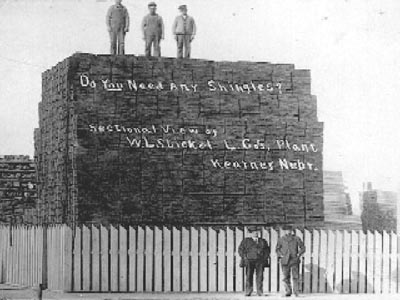 Do You Need Any Shingles?
Sectional View of
W.L. Stickel L. Co's, Plant
Kearney Nebr.